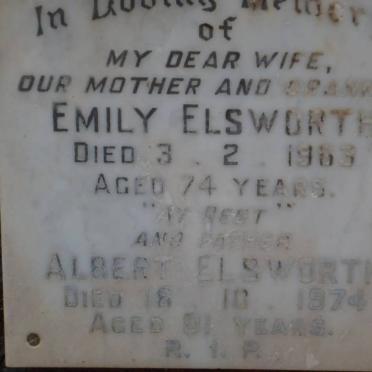 In Loving Memor
of
MY DEAR WIFE,
OUR MOTHER AND GRAN
EMILY ELSWORTH
DIED 3 . 2 . 1963
AGED 74 YEARS.
"AT REST"
AND FATHER
ALBERT ELSWORTH
DIED 18 . 10 . 1974
AGED 91 YEARS.
R. I. P.